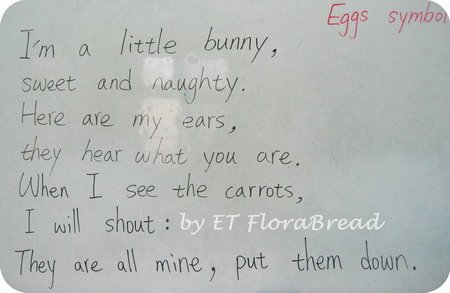 Eggs symbol
I'm a little bunny,
sweet and naughty.
Here are my ears,
they hear what you are.
When I see the carrots,
I will shout: by ET FloraBread
They are all mine, put them down.